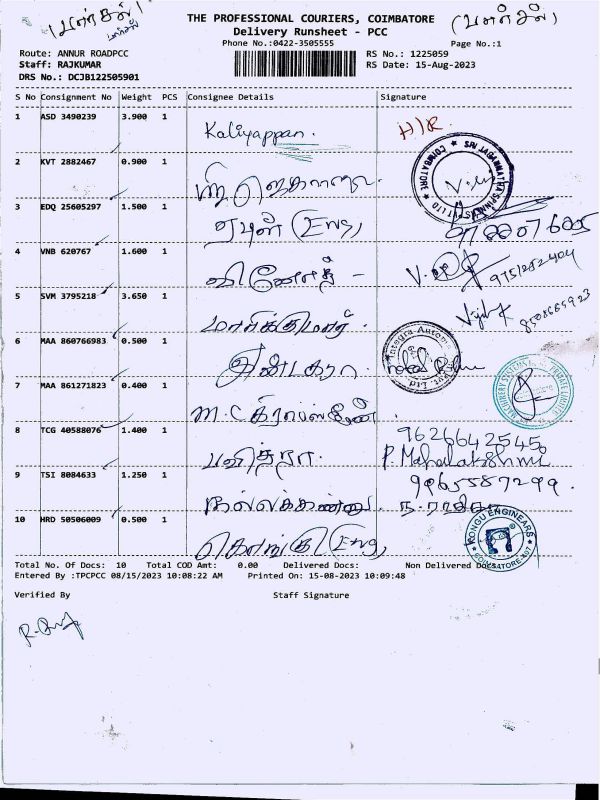 (பார்சல்)
பார்சல்
(பார்சல்)
THE PROFESSIONAL COURIERS, COIMBATORE
Delivery Runsheet - PCC
Phone No.:0422-3505555
Page No.:1
Route: ANNUR ROADPCC
RS No.: 1225059
Staff: RAJKUMAR
RS Date: 15-Aug-2023
DRS No.: DCJB122505901
S No Consignment No Weight PCS Consignee Details Signature
1 ASD 3490239 3.900 1 Kaliyappan. H/R
2 KVT 2882467 0.900 1
COIMBATORE ★ SRI JAGANNATHA SPINNERS PVT LTD ★
3 EDQ 25605297 1.500 1 ஏபுள் (Eng)
4 VNB 620767 1.600 1 வினோத் - 9751282404
5 SVM 3795218 3.650 1 மாரிக்குமார். 8508665923
6 MAA 860766983 0.500 1 இன்டகரா
Integra Automa
Pvt. Ltd
7 MAA 861271823 0.400 1 M.C
MACHINERY SYSTEMS PRIVATE LIMITED
8 TCG 40588076 1.400 1 பவித்ரா. 9626642545
P. Mahalakshmi
9 TSI 8084633 1.250 1 நல்லக்கண்ணு. 9965587299
10 HRD 50506009 0.500 1 கொங்கு (Eng)
KONGU ENGINEARS
COIMBATORE
Total No. Of Docs: 10 Total COD Amt: 0.00 Delivered Docs: Non Delivered Docs:
Entered By :TPCPCC 08/15/2023 10:08:22 AM Printed On: 15-08-2023 10:09:48
Verified By Staff Signature